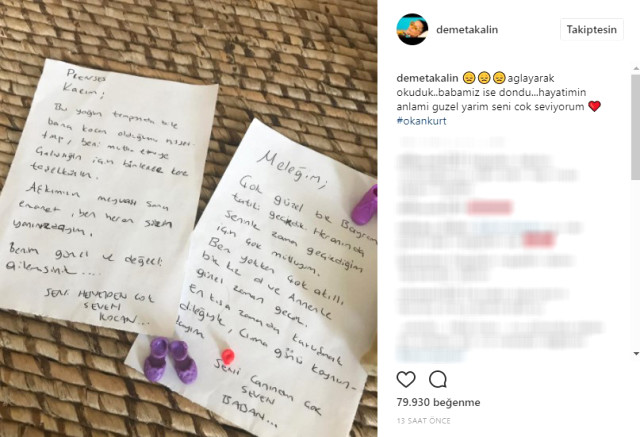 PRENSES
KARIM;
Bu yoğun temponda bile
bana kocan olduğumu
beni mutlu etmeye
için binlerce kez
teşekkürler.
Aşkımın meyvası sana
emanet, ben heran sizin
yanınızdayım.
Benim güzel ve değerli
ailemsiniz....
SENİ HERŞEYDEN ÇOK
SEVEN
KOCAN...
Meleğim;
Çok güzel bir Bayram
tatili geçirdik. Heranında
Seninle zaman geçirdiğim
için çok mutluyum.
Ben yokken çok akıllı
bir kız ol ve Annenle
güzel zaman geçir.
En kısa zamanda kavuşmak
dileğiyle, Cuma günü
SENİ Canından çok
SEVEN
BABAN...
demetakalin
Takiptesin
demetakalin 😣😣😣aglayarak
okuduk..babamiz ise dondu...hayatimin
anlami guzel yarim seni cok seviyorum ❤
#okankurt
79.930 beğenme
13 SAAT ÖNCE